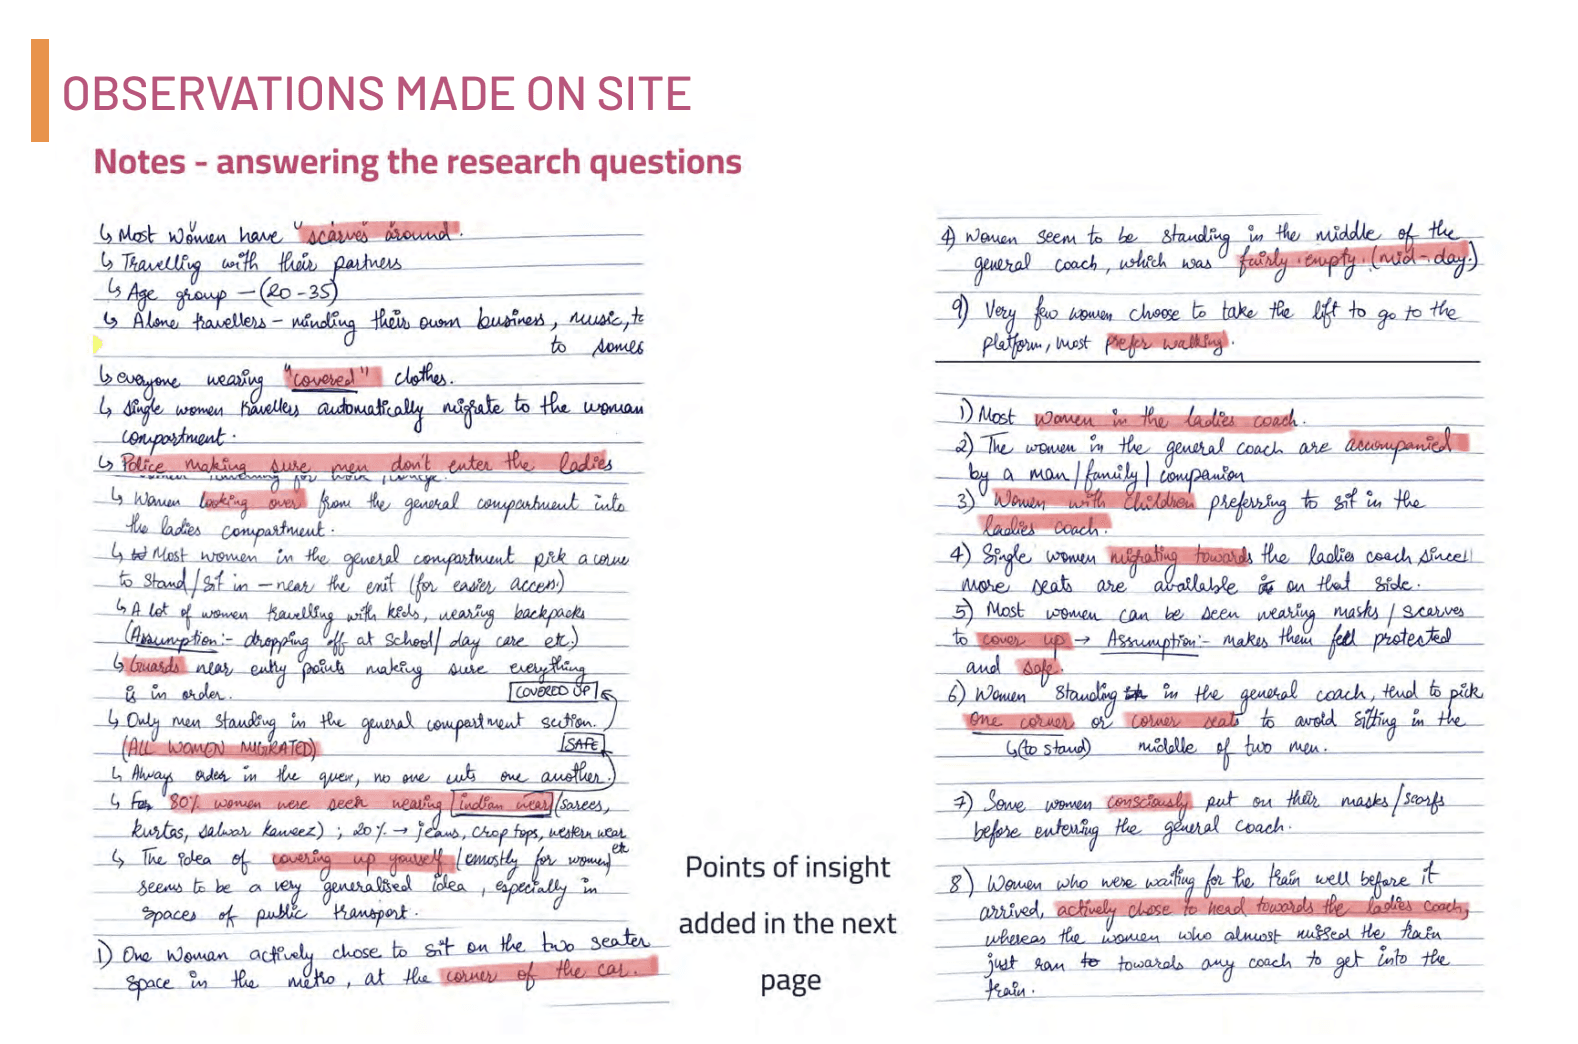 OBSERVATIONS MADE ON SITE
Notes - answering the research questions
↳ Most women have "scarves around".
↳ Travelling with their partners
↳ Age group — (20-35)
↳ Alone travellers - minding their own business, music,
to
↳ everyone wearing "covered" clothes.
↳ single women travellers automatically migrate to the woman
compartment.
↳ Police making sure men don't enter the ladies
↳ Women looking over from the general compartment into
the ladies compartment.
↳ Most women in the general compartment pick a
to stand/sit in — near the exit (for easier access)
↳ A lot of women travelling with kids, wearing backpacks
(Assumption:- dropping off at school/ day care etc.)
↳ Guards near entry points making sure everything
is in order.
COVERED UP
↳ Only men standing in the general compartment section.
(ALL WOMEN MIGRATED)
SAFE
↳ Always order in the queue, no one cuts one another.
↳ 80% women were seen wearing indian wear (sarees,
kurtas, salwar kameez) ; 20% → jeans, crop tops, western wear
etc
↳ The idea of covering up yourself (mostly for women)
seems to be a very generalised idea, especially in
spaces of public transport.
1) One woman actively chose to sit on the two seater
space in the metro, at the corner of the car.
Points of insight
added in the next
page
4) Women seem to be standing in the middle of the
general coach, which was fairly empty. (mid-day.)
9) Very few women choose to take the lift to go to the
platform, most prefer walking.
1) Most women in the ladies coach.
2) The women in the general coach are accompanied
by a man/family/companion
3) Women with children preferring to sit in the
ladies coach.
4) Single women migrating towards the ladies coach since
more seats are available on that side.
5) Most women can be seen wearing masks / scarves
to cover up → Assumption:- makes them feel protected
and safe.
6) Women standing in the general coach, tend to pick
one corner or corner seats to avoid sitting in the
↳(to stand) middle of two men.
7) Some women consciously put on their masks/scarfs
before entering the general coach.
8) Women who were waiting for the train well before it
arrived, actively chose to head towards the ladies coach,
whereas the women who almost missed the train
just ran towards any coach to get into the
train.